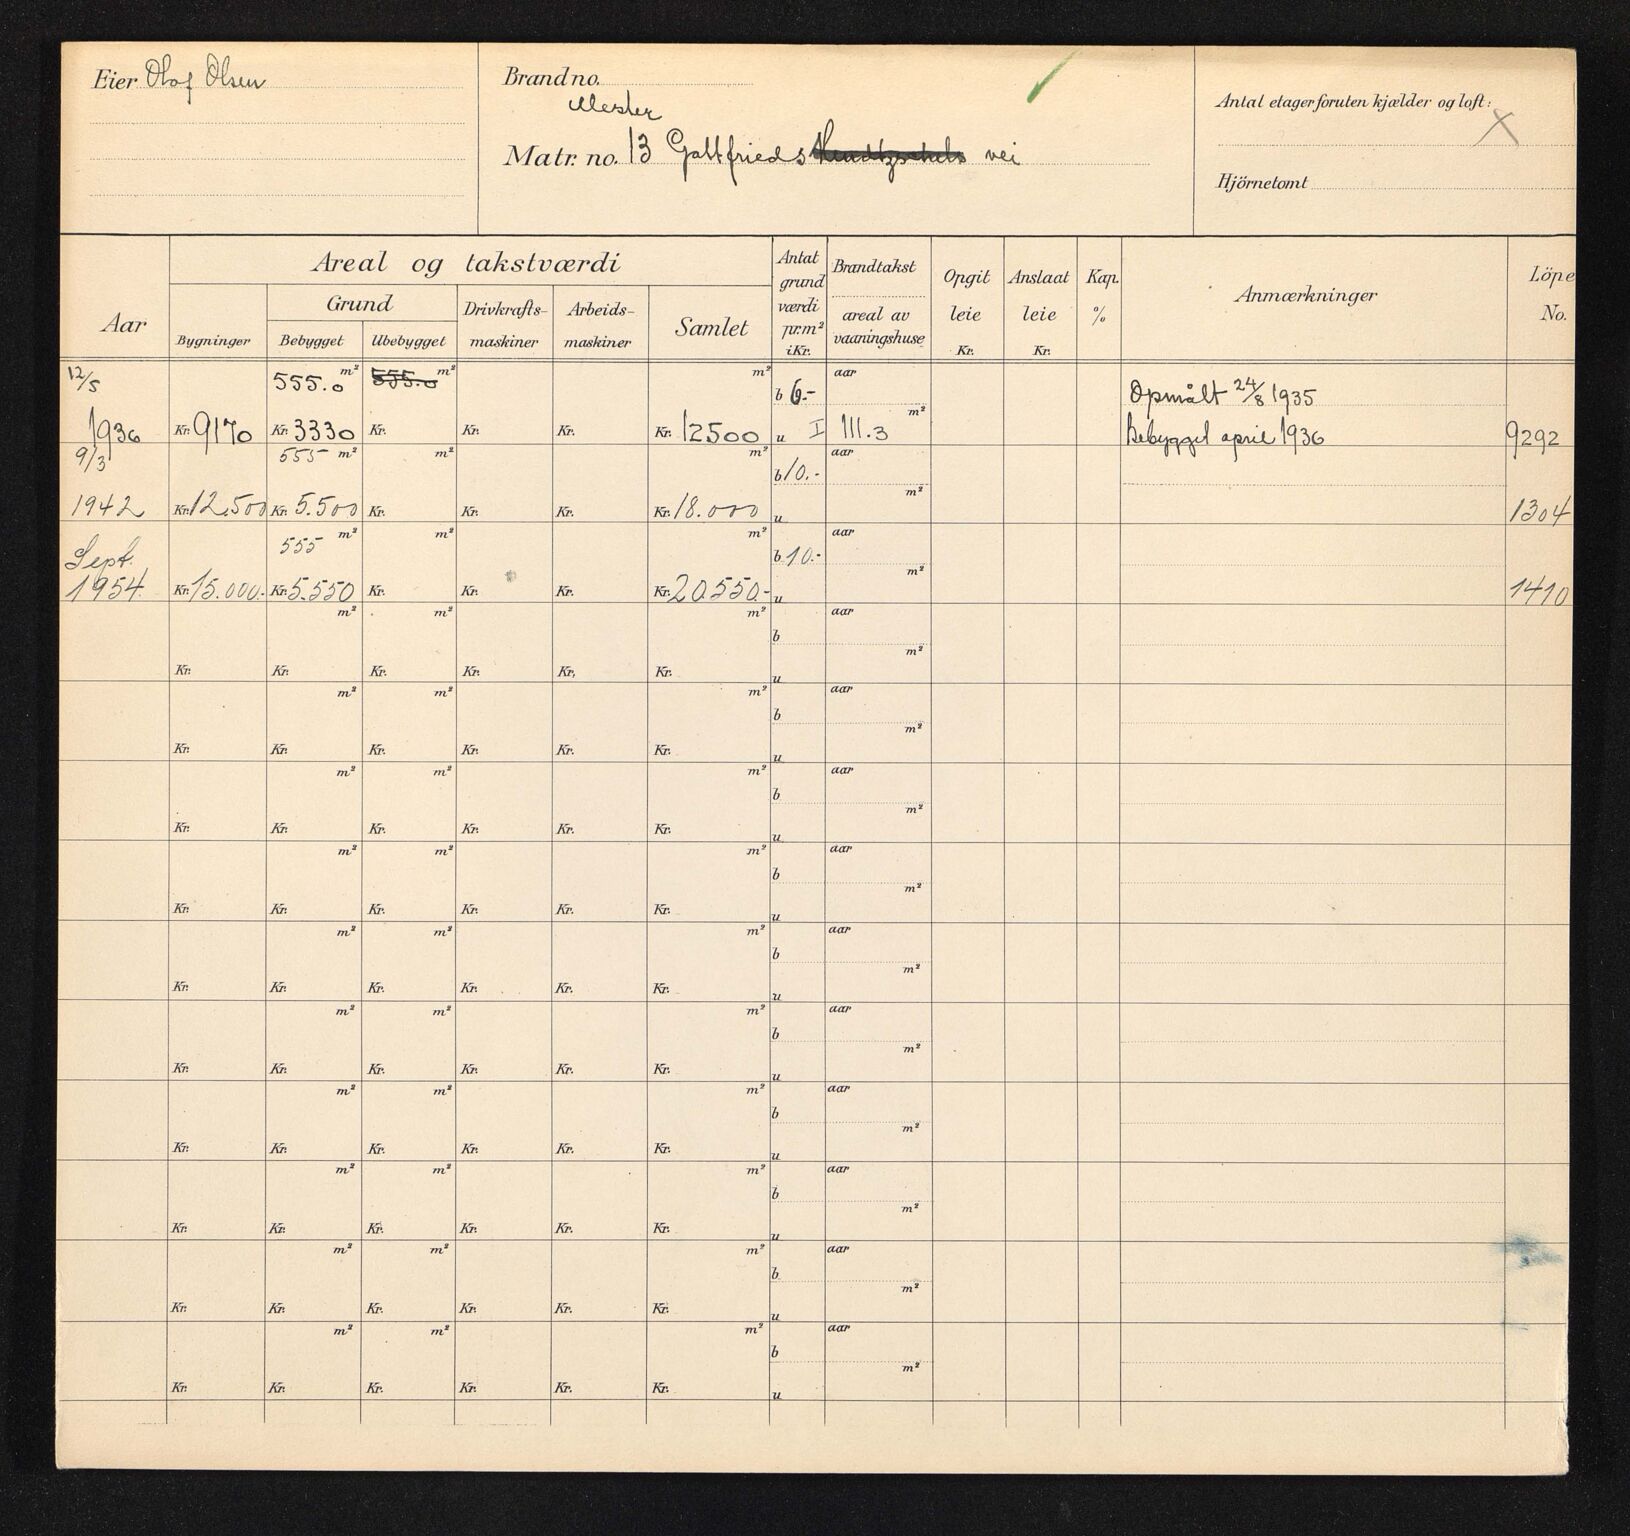 Eier Olof Olsen
Brand no.
Mester
Matr. no. 13 Gottfrieds Hendtzschels vei
Antal etager foruten kjælder og loft:
Hjörnetomt
Aar
Areal og takstværdi
Grund
Bygninger
Bebygget
Ubebygget
Drivkrafts-
maskiner
Arbeids-
maskiner
Samlet
Antat
grund
værdi
pr. m²
i Kr.
Brandtakst
areal av
vaaningshuse
Opgit
leie
Kr.
Anslaat
leie
Kr.
Kap.
%
Anmærkninger
Löpe
No.
12/5 555.0 m² 555.0 m² m² b 6.- aar Opmålt 24/8 1935
1936 Kr. 9170 Kr. 3330 Kr. Kr. Kr. Kr. 12500 u I 111.3 m² Bebygget april 1936 9292
9/3 555 m² m² m² b 10.- aar
1942 Kr. 12.500 Kr. 5.500 Kr. Kr. Kr. Kr. 18.000 u m² 1304
Sept. 555 m² m² m² b 10.- aar
1954 Kr. 15.000.- Kr. 5.550 Kr. Kr. Kr. Kr. 20550.- u m² 1410
m² m² m² b aar
Kr. Kr. Kr. Kr. Kr. Kr. u m²
m² m² m² b aar
Kr. Kr. Kr. Kr. Kr. Kr. u m²
m² m² m² b aar
Kr. Kr. Kr. Kr. Kr. Kr. u m²
m² m² m² b aar
Kr. Kr. Kr. Kr. Kr. Kr. u m²
m² m² m² b aar
Kr. Kr. Kr. Kr. Kr. Kr. u m²
m² m² m² b aar
Kr. Kr. Kr. Kr. Kr. Kr. u m²
m² m² m² b aar
Kr. Kr. Kr. Kr. Kr. Kr. u m²
m² m² m² b aar
Kr. Kr. Kr. Kr. Kr. Kr. u m²
m² m² m² b aar
Kr. Kr. Kr. Kr. Kr. Kr. u m²
m² m² m² b aar
Kr. Kr. Kr. Kr. Kr. Kr. u m²